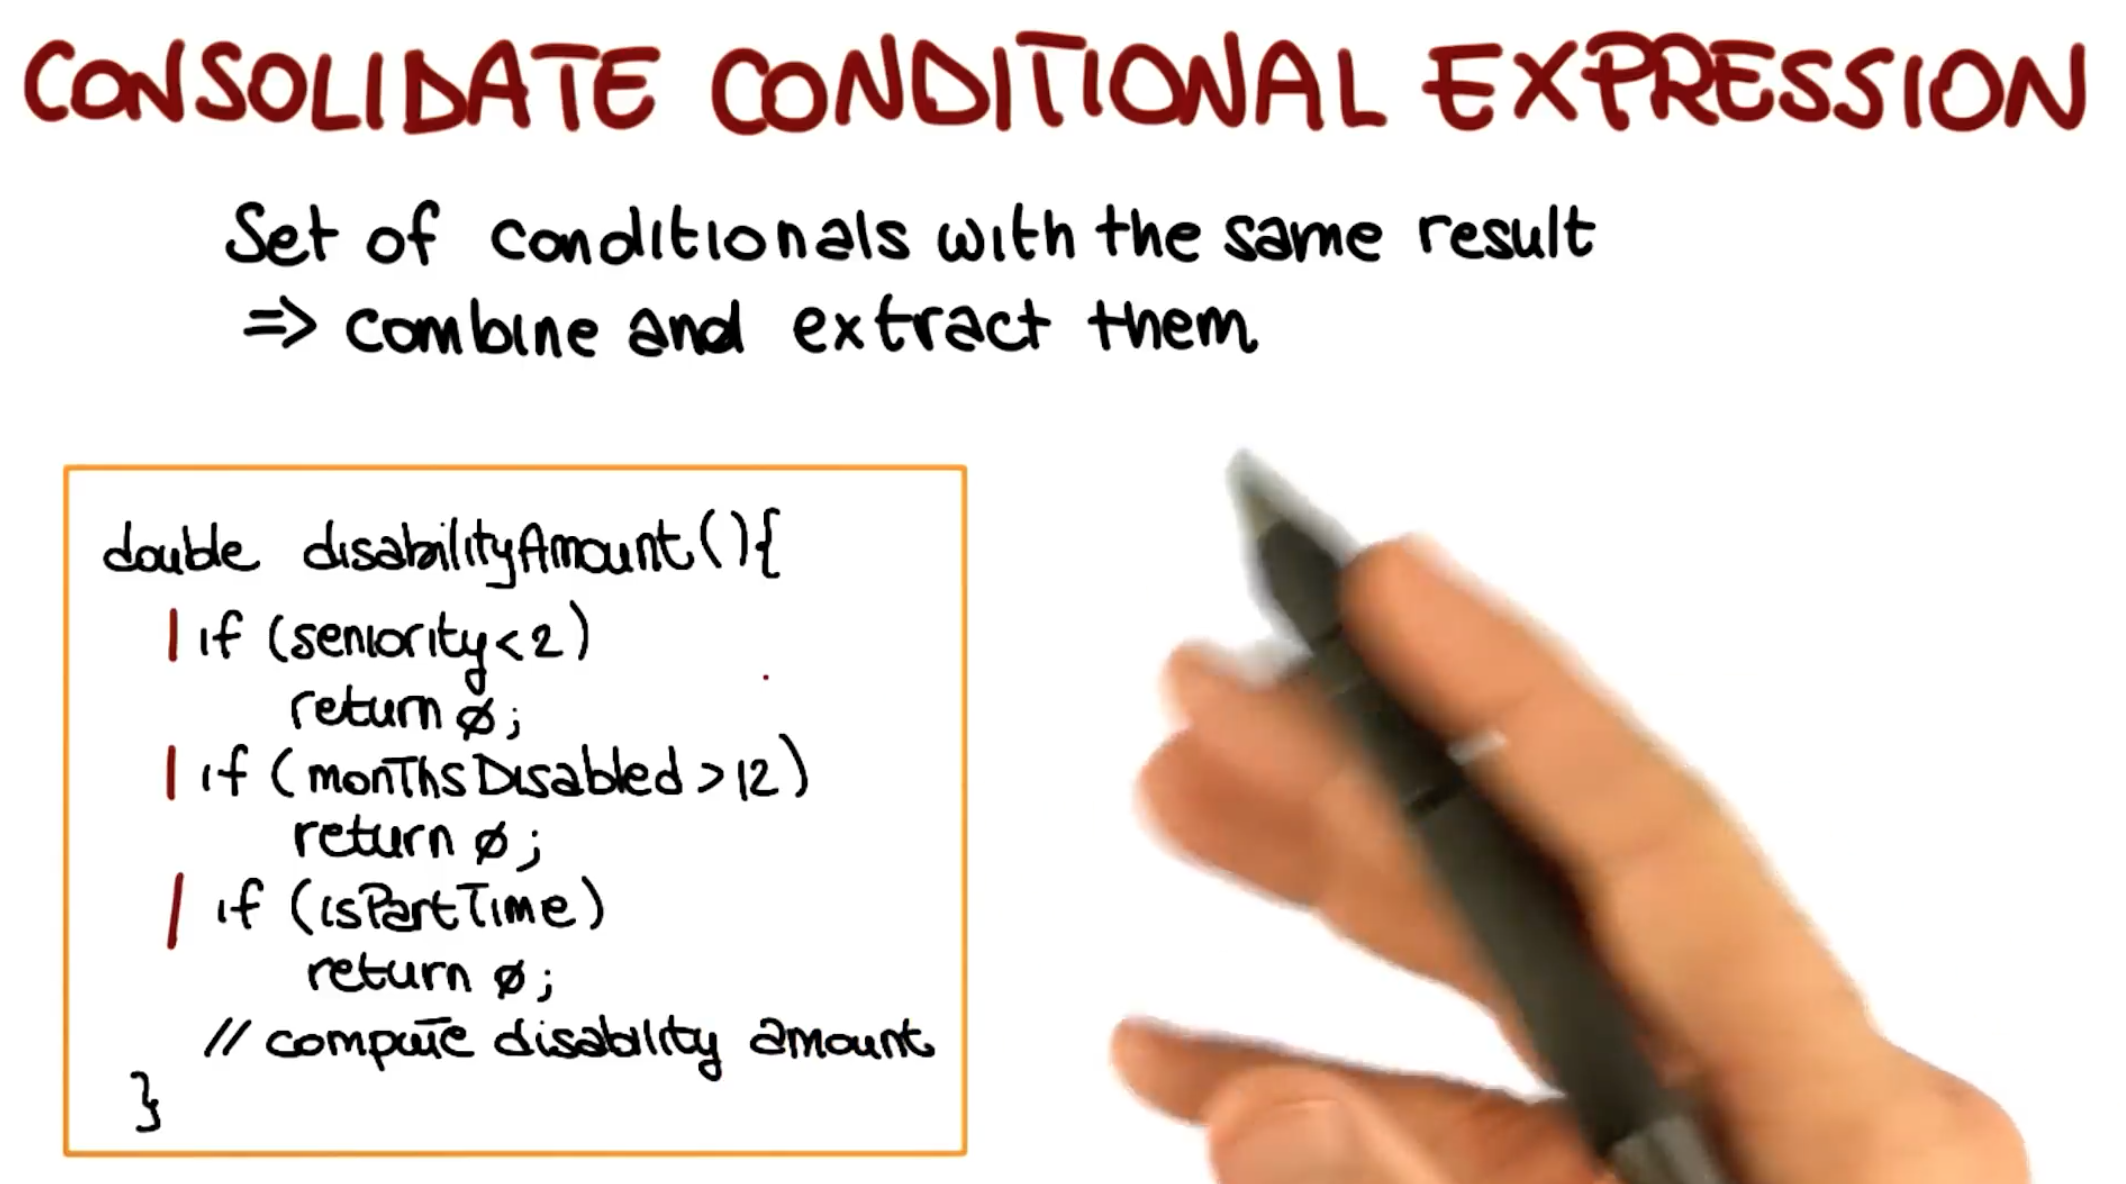 CONSOLIDATE CONDITIONAL EXPRESSION
Set of conditionals with the same result
=> combine and extract them
double disabilityAmount(){
if (seniority<2)
return 0;
if (monthsDisabled>12)
return 0;
if (isPartTime)
return 0;
// compute disability amount
}